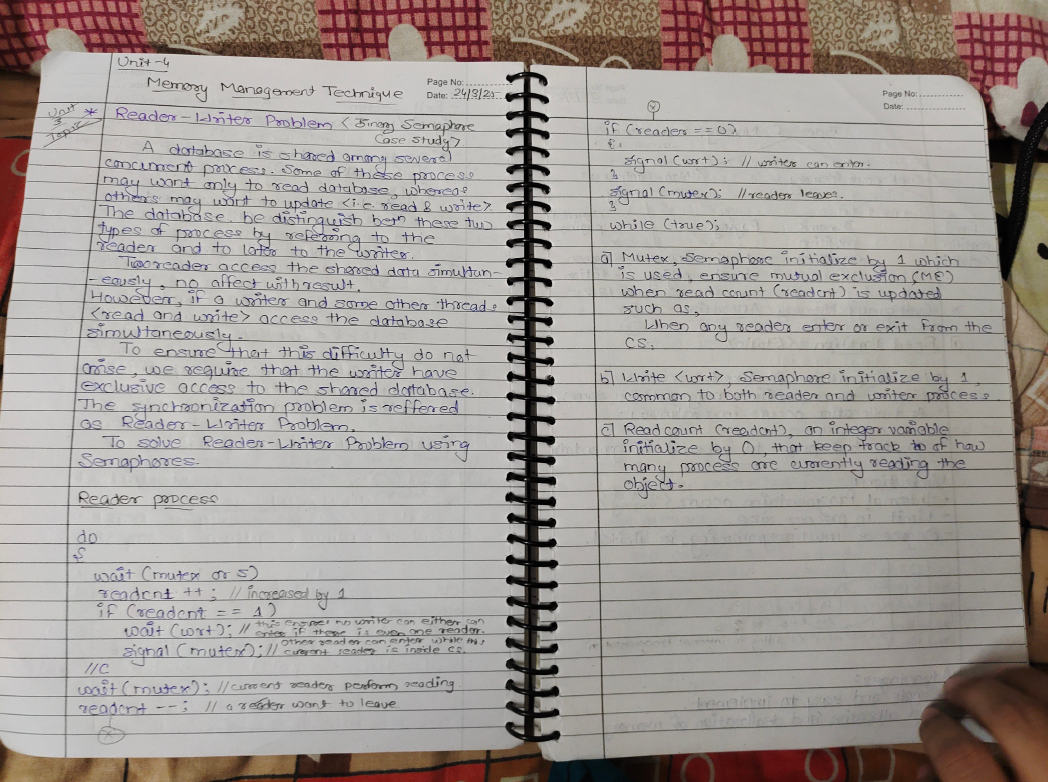 Unit-4
Memory Management Technique
Page No:
Date: 24/3/25
Unit 3 Topic *
Reader-Writer Problem <Binary Semaphore
Case study>
A database is shared among several
concurrent process. Some of these process
may want only to read database, whereas
others may want to update <i.e. read & write>
The database. be distinguish betn these two
types of process by referring to the
reader and to later to the writer.
Two reader access the shared data simultan-
eously, no affect with result,
However, if a writer and some other threads
<read and write> access the database
simultaneously.
To ensure that this difficulty do not
arise, we require that the writer have
exclusive access to the shared database.
The synchronization problem is reffered
as Reader-Writer Problem.
To solve Reader-Writer Problem using
Semaphores.
Reader process
do
{
wait (mutex or S)
readcnt ++ ; // increased by 1
if (readcnt == 1)
wait (wrt); // this ensures no writer can either can
enter if there is even one reader.
other reader can enter while this
signal (mutex); // current reader is inside CS.
//C
wait (mutex); // current reader perform reading
readcnt --; // a reader want to leave
Page No:
Date:
if (reader == 0)
{
signal (wrt); // writer can enter.
}
signal (mutex); // reader leaves.
}
while (true);
a] Mutex, semaphore initialize by 1 which
is used, ensure mutual exclusion (ME)
when read count (readcnt) is updated
such as,
When any reader enter or exit from the
CS.
b] Write <wrt>, Semaphore initialize by 1,
common to both reader and writer process.
c] Read count (readcnt), an integer variable
initialize by 0, that keep track of how
many process are currently reading the
object.